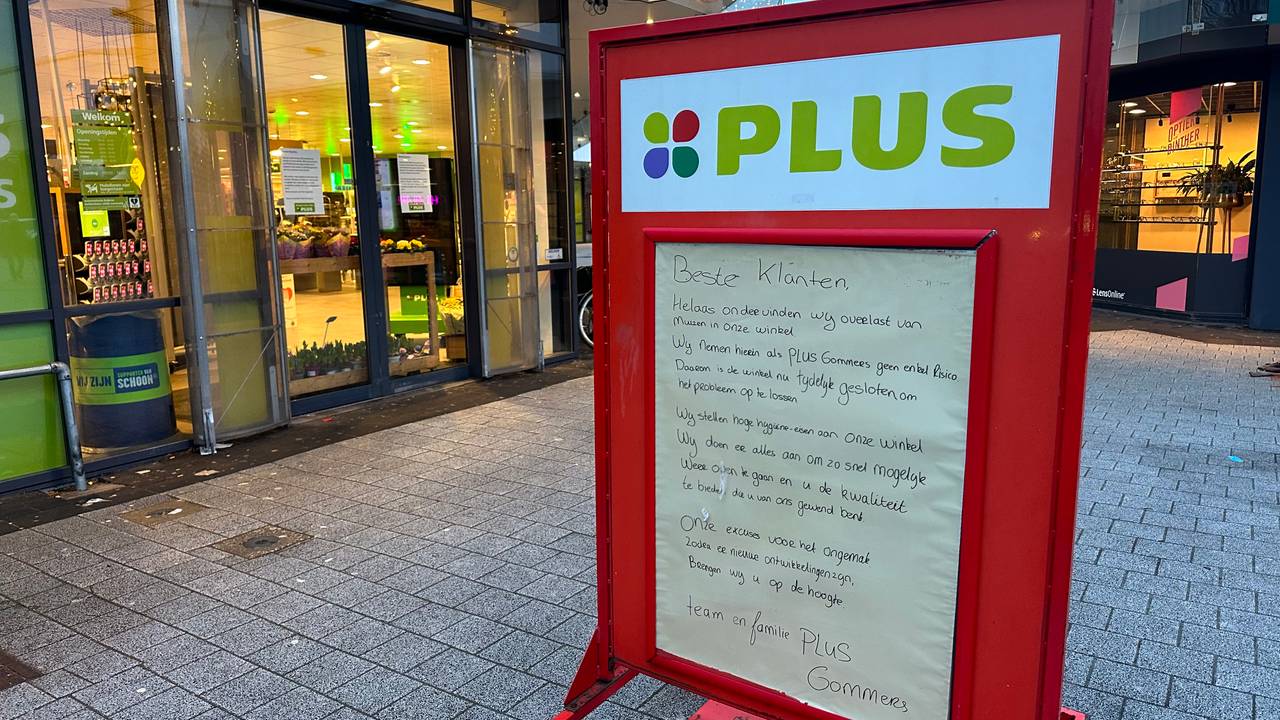 PLUS
Beste Klanten,
Helaas ondervinden wy overlast van
Muizen in onze winkel
Wy Nemen hierin als PLUS Gommers geen enkel Risico
Daarom is de winkel nu tydelyk gesloten, om
het probleem op te lossen
Wy stellen hoge hygiene-eisen aan onze winkel
Wy doen er alles aan om zo snel mogelyk
Weer open te gaan en u de kwaliteit
te bieden die u van ons gewend bent
Onze excuses voor het ongemak
Zodra er nieuwe ontwikkelingen zyn,
Brengen wy u op de hoogte
team en familie PLUS
Gommers
Welkom
Openingstijden
WIJ ZIJN SUPPORTER VAN SCHOON!
PLUS
PLUS
LensOnline